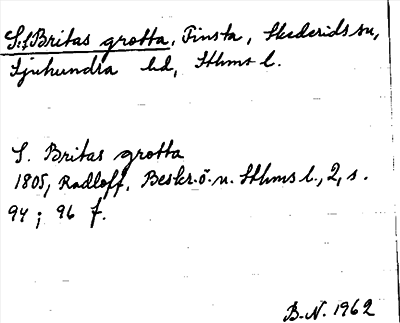 S:t Britas grotta, Finsta, Skederids sn,
Sjuhundra hd, Sthms l.
S. Britas grotta
1805, Radloff, Beskr. ö. n. Sthms l., 2, s.
94; 96 f.
B.-N. 1962